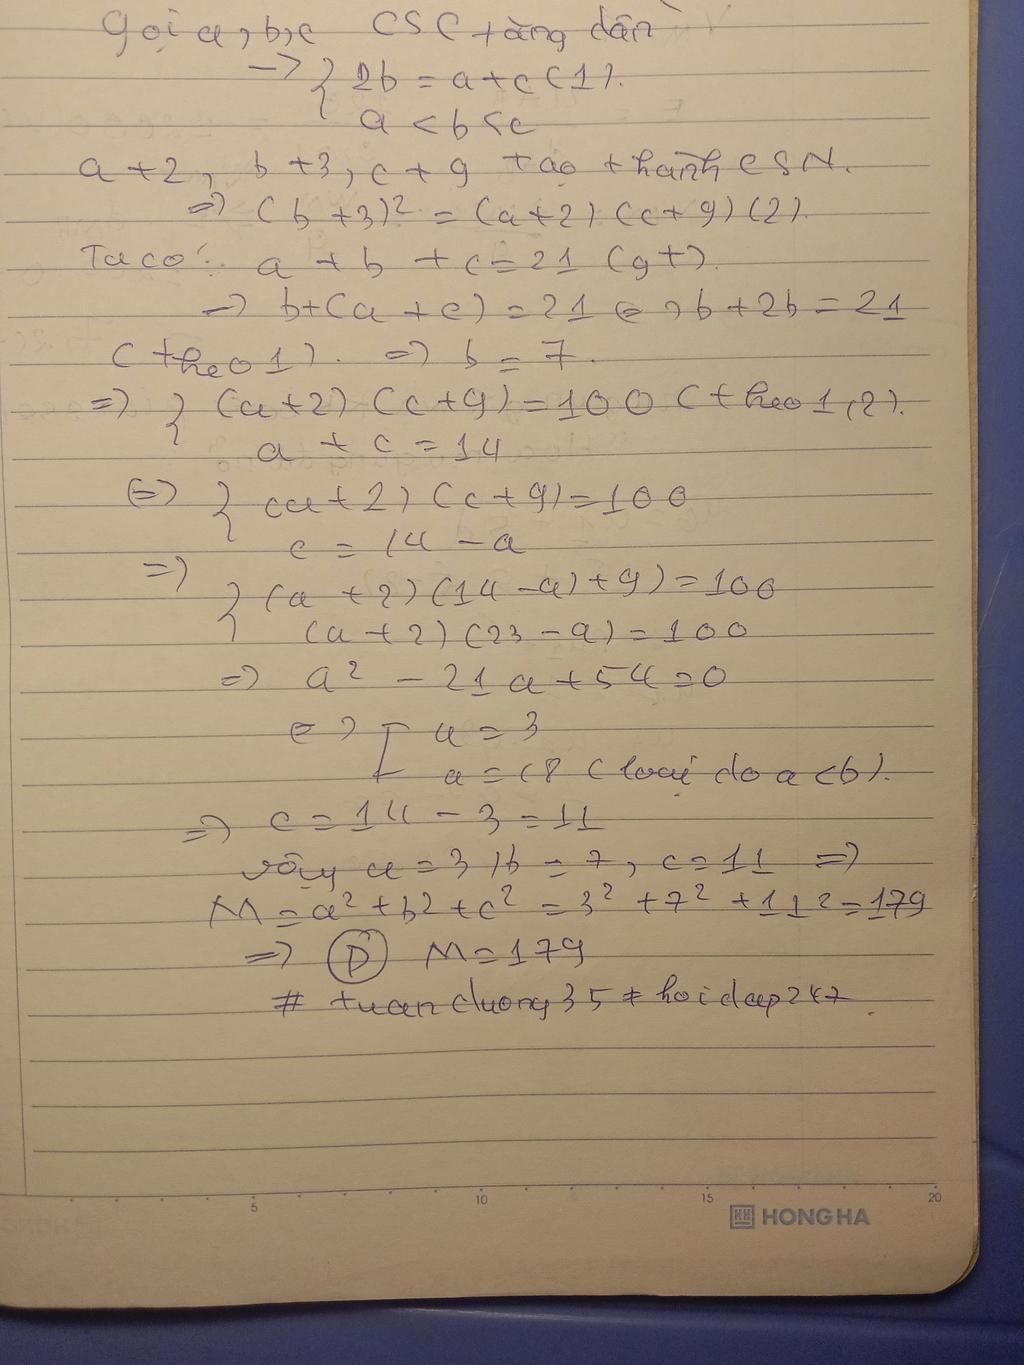 Gọi a, b, c CSC tăng dần
→ { 2b = a + c (1).
a < b < c
a + 2, b + 3, c + 9 tạo thành CSN.
=> (b + 3)² = (a + 2) (c + 9) (2).
Ta có: a + b + c = 21 (gt).
=> b + (a + c) = 21 <=> b + 2b = 21
(theo 1). => b = 7.
=> { (a + 2) (c + 9) = 100 (theo 1, 2).
a + c = 14
<=> { (a + 2) (c + 9) = 100
c = 14 - a
=>
{ (a + 2) (14 - a) + 9) = 100
(a + 2) (23 - a) = 100
=> a² - 21a + 54 = 0
<=> [ a = 3
a = 18 (loại do a < b).
=> c = 14 - 3 = 11
vậy a = 3, b = 7, c = 11 =>
M = a² + b² + c² = 3² + 7² + 11² = 179
=> D M = 179
# tuanduong35 # hoidap247
5 10 15 20
HONG HA